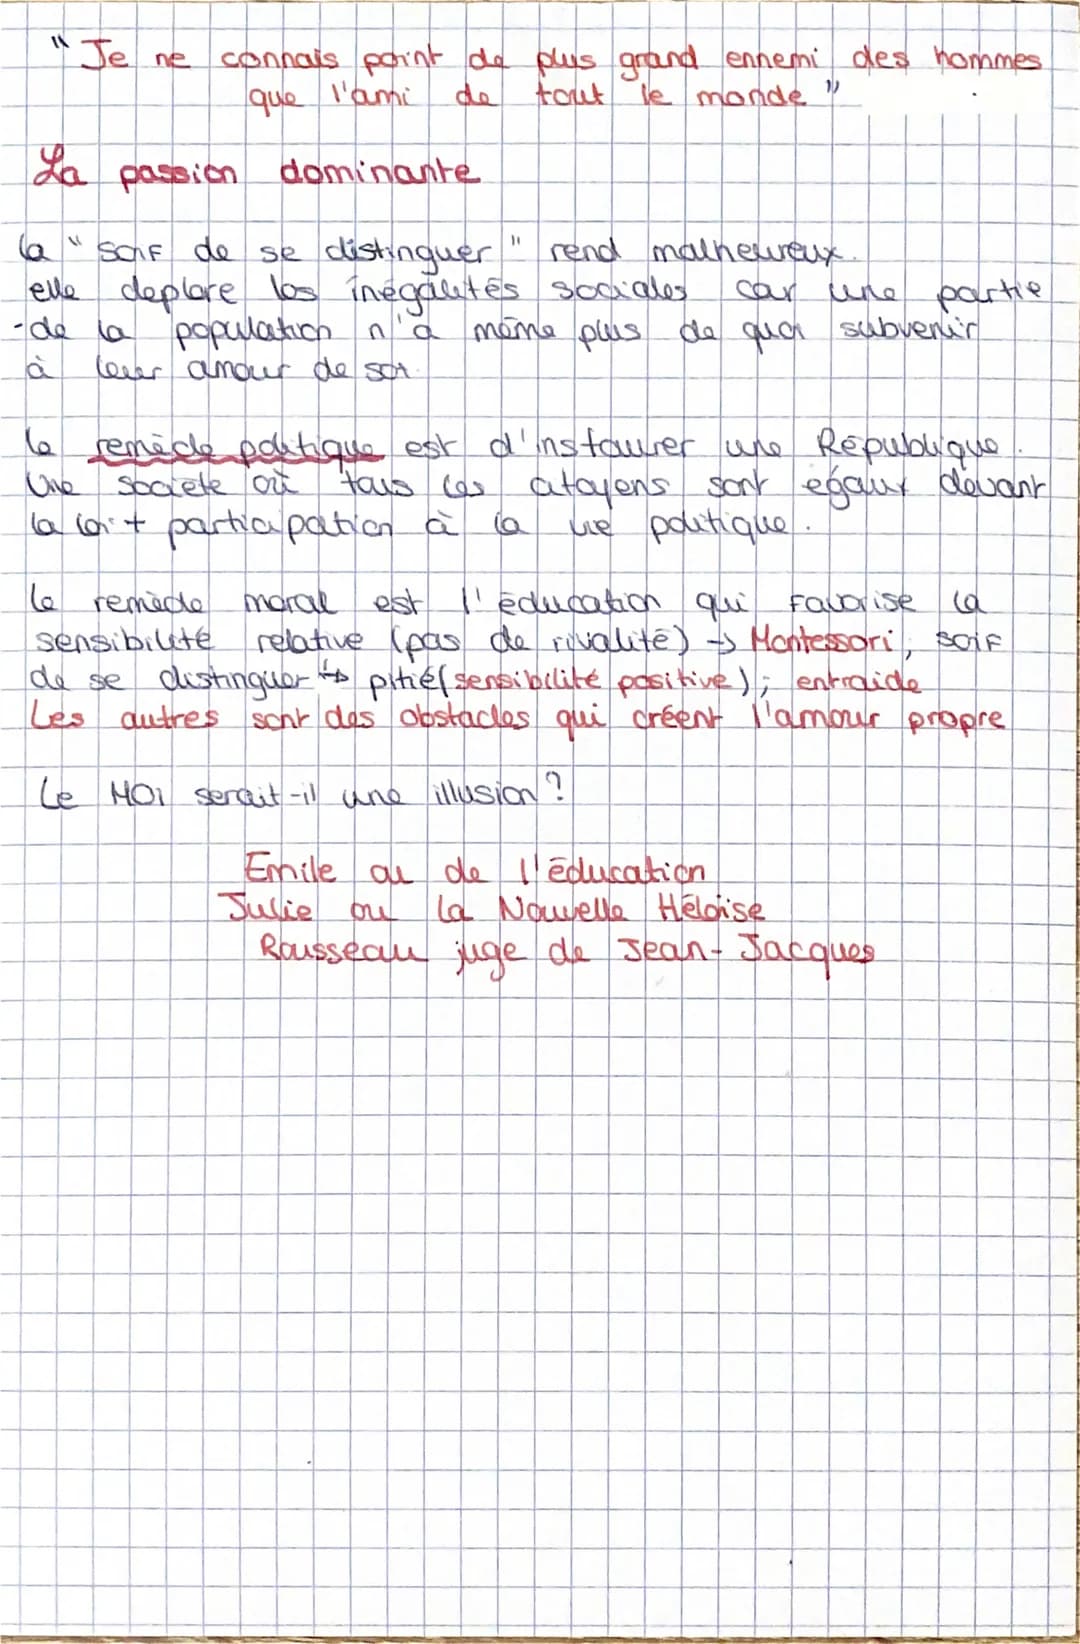 "Je ne connais point de plus grand ennemi des hommes
que l'ami de tout le monde"
La passion dominante
la "soif de se distinguer" rend malheureux.
elle deplore les inégalités sociales car une partie
-de la population n'a même plus de quoi subvenir
à leur amour de soi.
le remède politique est d'instaurer une République.
Une societe où tous les citoyens sont égaux devant
la loi + participation à la vie politique.
le remède moral est l'éducation qui favorise la
sensibilité relative (pas de rivalité) → Montessori, soif
de se distinguer ↳ pitié (sensibilité positive); entraide
Les autres sont des obstacles qui créent l'amour propre
Le MOi serait-il une illusion ?
Emile ou de l'éducation
Julie ou la Nouvelle Héloïse
Rousseau juge de Jean-Jacques